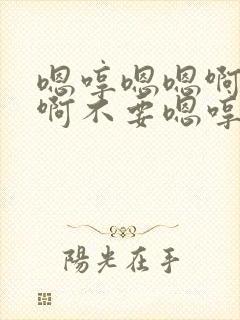 嗯哼嗯嗯啊
啊不要嗯哼
陽光在手